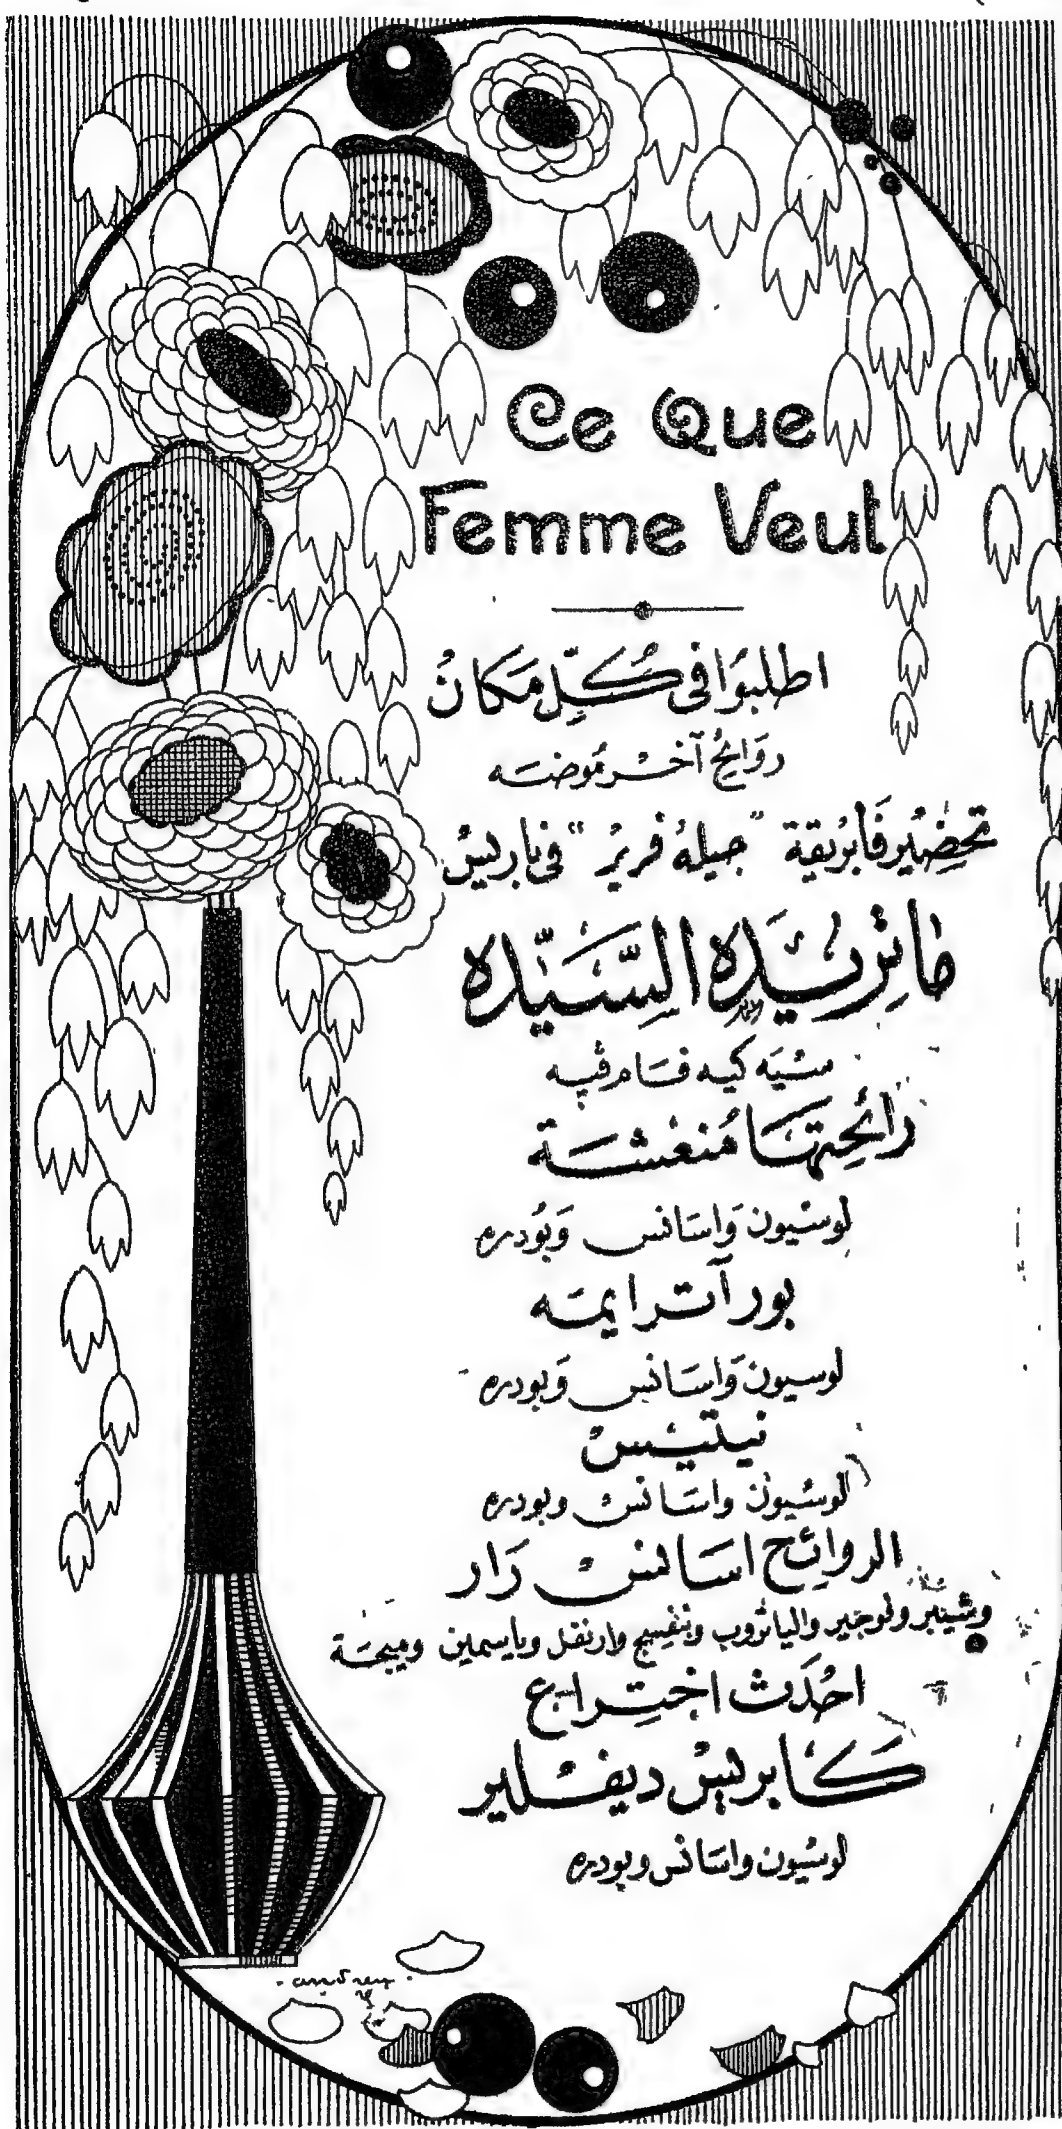 Ce Que
Femme Veut
اطلبوا في كل مكان
روائح آخر موضه
تحضير فابريقة "جيله فرير" في باريس
ما تريده السيده
سيه كيه فام فيه
رائحتها منعشة
لوسيون واسانس وبودره
بور آترايمه
لوسيون واسانس وبودره
نيتيس
لوسيون واسانس وبودره
الروائح اسانس رار
وشيبر ولوجير والياتروب وبنفسج وارنفل وياسمين
احدث اختراع
كابريس ديفلير
لوسيون واسانس وبودره